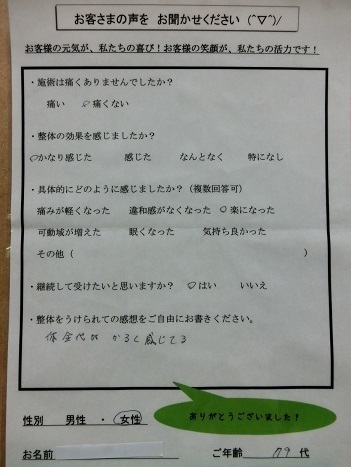 お客さまの声を お聞かせください (^▽^)/
お客様の元気が、私たちの喜び!お客様の笑顔が、私たちの活力です!
・施術は痛くありませんでしたか?
痛い ○痛くない
・整体の効果を感じましたか?
○かなり感じた 感じた なんとなく 特になし
・具体的にどのように感じましたか?(複数回答可)
痛みが軽くなった 違和感がなくなった ○楽になった
可動域が増えた 眠くなった 気持ち良かった
その他( )
・継続して受けたいと思いますか? ○はい いいえ
・整体をうけられての感想をご自由にお書きください。
体全代が かるく感じてる
ありがとうございました!
性別 男性 ・ 女性
お名前 ご年齢 79 代